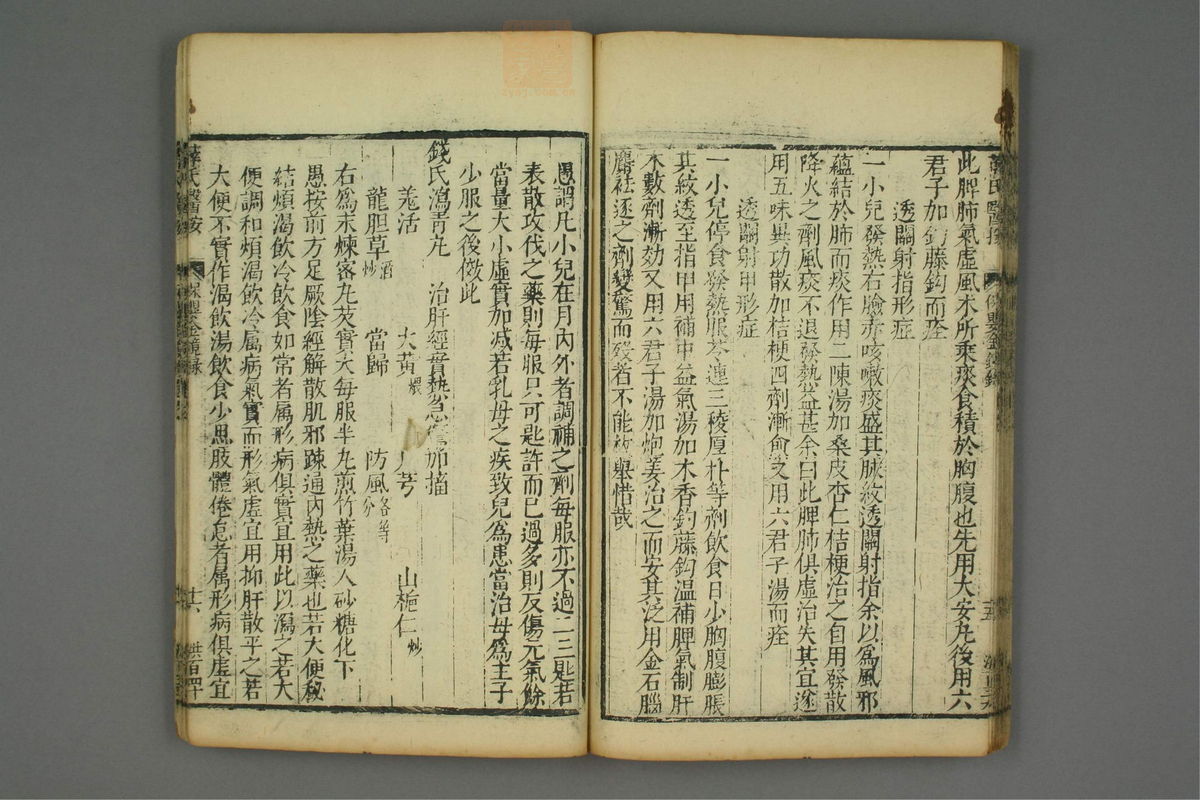 此脾肺氣虛風木所乘痰食積於胸腹也先用大安丸後用六
君子加釣藤鈎而痊
透關射指形症
一小兒發熱右臉赤咳嗽痰盛其脉紋透關射指余以爲風邪
蘊結於肺而痰作用二陳湯加桑皮杏仁桔梗治之自用發散
降火之劑風痰不退發熱益甚余曰此脾肺俱虛治失其宜遂
用五味異功散加桔梗四劑漸愈又用六君子湯而痊
透關射甲形症
一小兒停食發熱服芩連三稜厚朴等劑飲食日少胸腹膨脹
其紋透至指甲用補中益氣湯加木香釣藤鈎溫補脾氣制肝
木數劑漸効又用六君子湯加炮姜治之而安其泛用金石腦
麝祛逐之劑變驚而殁者不能枚舉惜哉
愚謂凡小兒在月內外者調補之劑每服亦不過二三匙若
表散攻伐之藥則每服只可匙許而已過多則反傷元氣餘
當量大小虛實加减若乳母之疾致兒爲患當治母爲主子
少服之後倣此
錢氏瀉青丸 治肝經實熱急搐
羗活 大黃煨 芎 山梔仁炒
龍胆草酒炒 當歸 防風各等分
右爲末煉宻丸芡實大每服半丸煎竹葉湯入砂糖化下
愚按前方足厥陰經解散肌邪踈通內熱之藥也若大便秘
結煩渴飲冷飲食如常者属形病俱實宜用此以瀉之若大
便調和煩渴飲冷属病氣實而形氣虛宜用抑肝散平之若
大便不實作渴飲湯飲食少思肢體倦怠者属形病俱虛宜
薛氏醫按 保嬰金鏡録 十六 共百四十